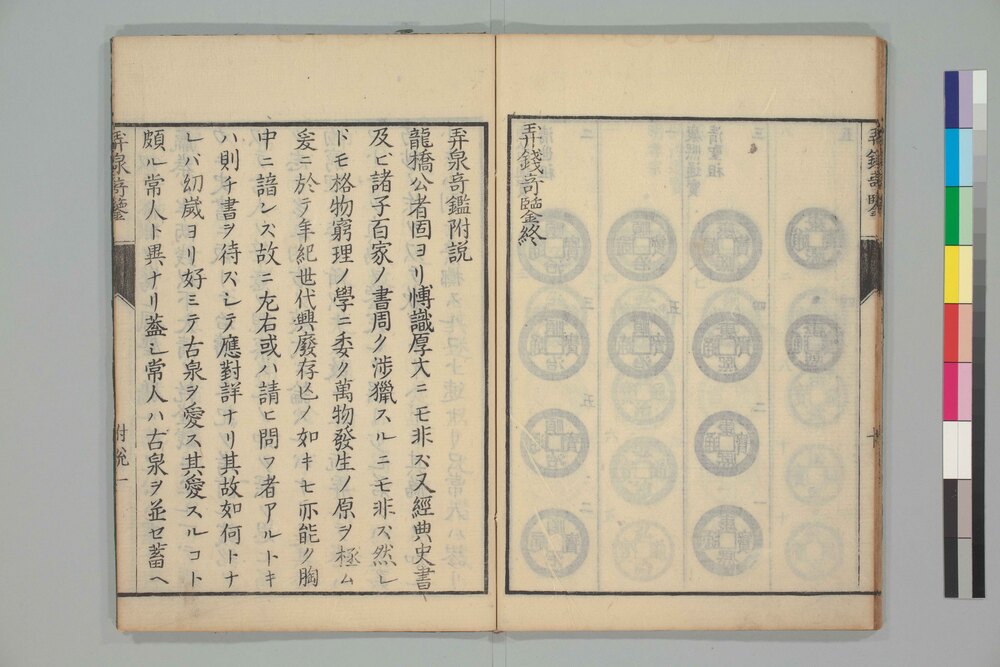 弄錢奇鑑終
弄泉奇鑑附説
龍橋公者固ヨリ博識厚才ニモ非ズ又經典史書
及ビ諸子百家ノ書周ク渉獵スルニモ非ズ然レ
ドモ格物窮理ノ學ニ委ク萬物發生ノ原ヲ極ム
爰ニ於テ年紀世代興廢存亡ノ如キモ亦能ク胸
中ニ諳ンズ故ニ左右或ハ請ヒ問フ者アルトキ
ハ則チ書ヲ待ズシテ應對詳ナリ其故如何トナ
レバ幼歳ヨリ好ミテ古泉ヲ愛ス其愛スルコト
頗ル常人ト異ナリ蓋シ常人ハ古泉ヲ並セ蓄ヘ
弄泉奇鑑
附説一